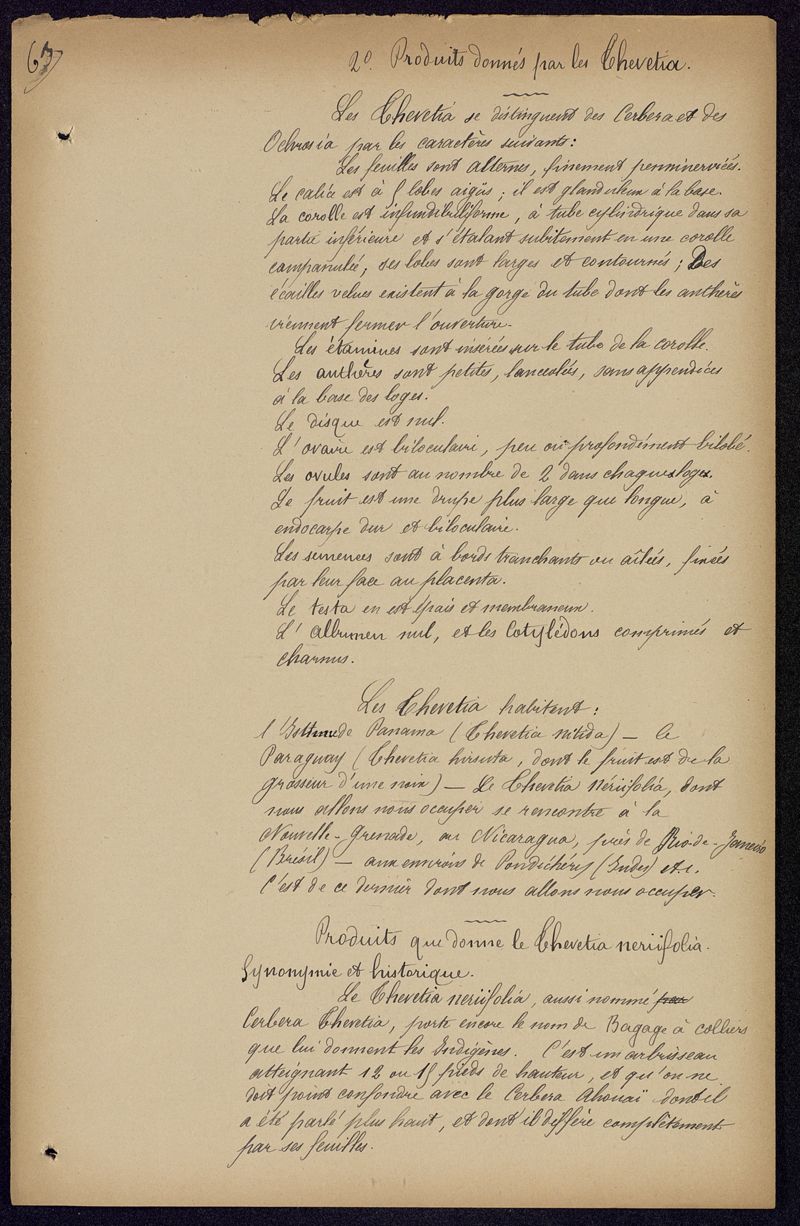 63
2º. Produits donnés par les Thevetia.
Les Thevetia se distinguent des Cerbera et des
Ochrosia par les caractères suivants:
Les feuilles sont alternes, finement penninerviées.
Le calice est à 5 lobes aigüs; il est glanduleux à la base.
La corolle est infundibuliforme, à tube cylindrique dans sa
partie inférieure et s'étalant subitement en une corolle
campanulée; ses lobes sont larges et contournés; Des
écailles velues existent à la gorge du tube dont les anthères
viennent fermer l'ouverture.
Les étamines sont insérées sur le tube de la corolle.
Les anthères sont petites, lancéolées, sans appendices
à la base des loges.
Le disque est nul.
L'ovaire est biloculaire, peu ou profondément bilobé.
Les ovules sont au nombre de 2 dans chaque loge.
Le fruit est une drupe plus large que longue, à
endocarpe dur et biloculaire.
Les semences sont à bords tranchants ou aîlées, fixées
par leur face au placenta.
Le testa en est épais et membraneux.
L'albumen nul, et les Cotylédons comprimés et
charnus.
Les Thevetia habitent:
l'Isthme de Panama (Thevetia nitida) — le
Paraguay (Thevetia hirsuta, dont le fruit est de la
grosseur d'une noix) — Le Thevetia nériifolia, dont
nous allons nous occuper se rencontre à la
Nouvelle-Grenade, au Nicaragua, près de Rio-de-Janeiro
(Brésil) — aux environs de Pondichéry (Indes) etc.
C'est de ce dernier dont nous allons nous occuper.
Produits que donne le Thevetia neriifolia.
Synonymie et historique.
Le Thevetia neriifolia, aussi nommé
Cerbera Thevetia, porte encore le nom de Bagage à colliers
que lui donnent les Indigènes. C'est un arbrisseau
atteignant 12 ou 15 pieds de hauteur, et qu'on ne
doit point confondre avec le Cerbera Ahouaï dont il
a été parlé plus haut, et dont il diffère complètement
par ses feuilles.